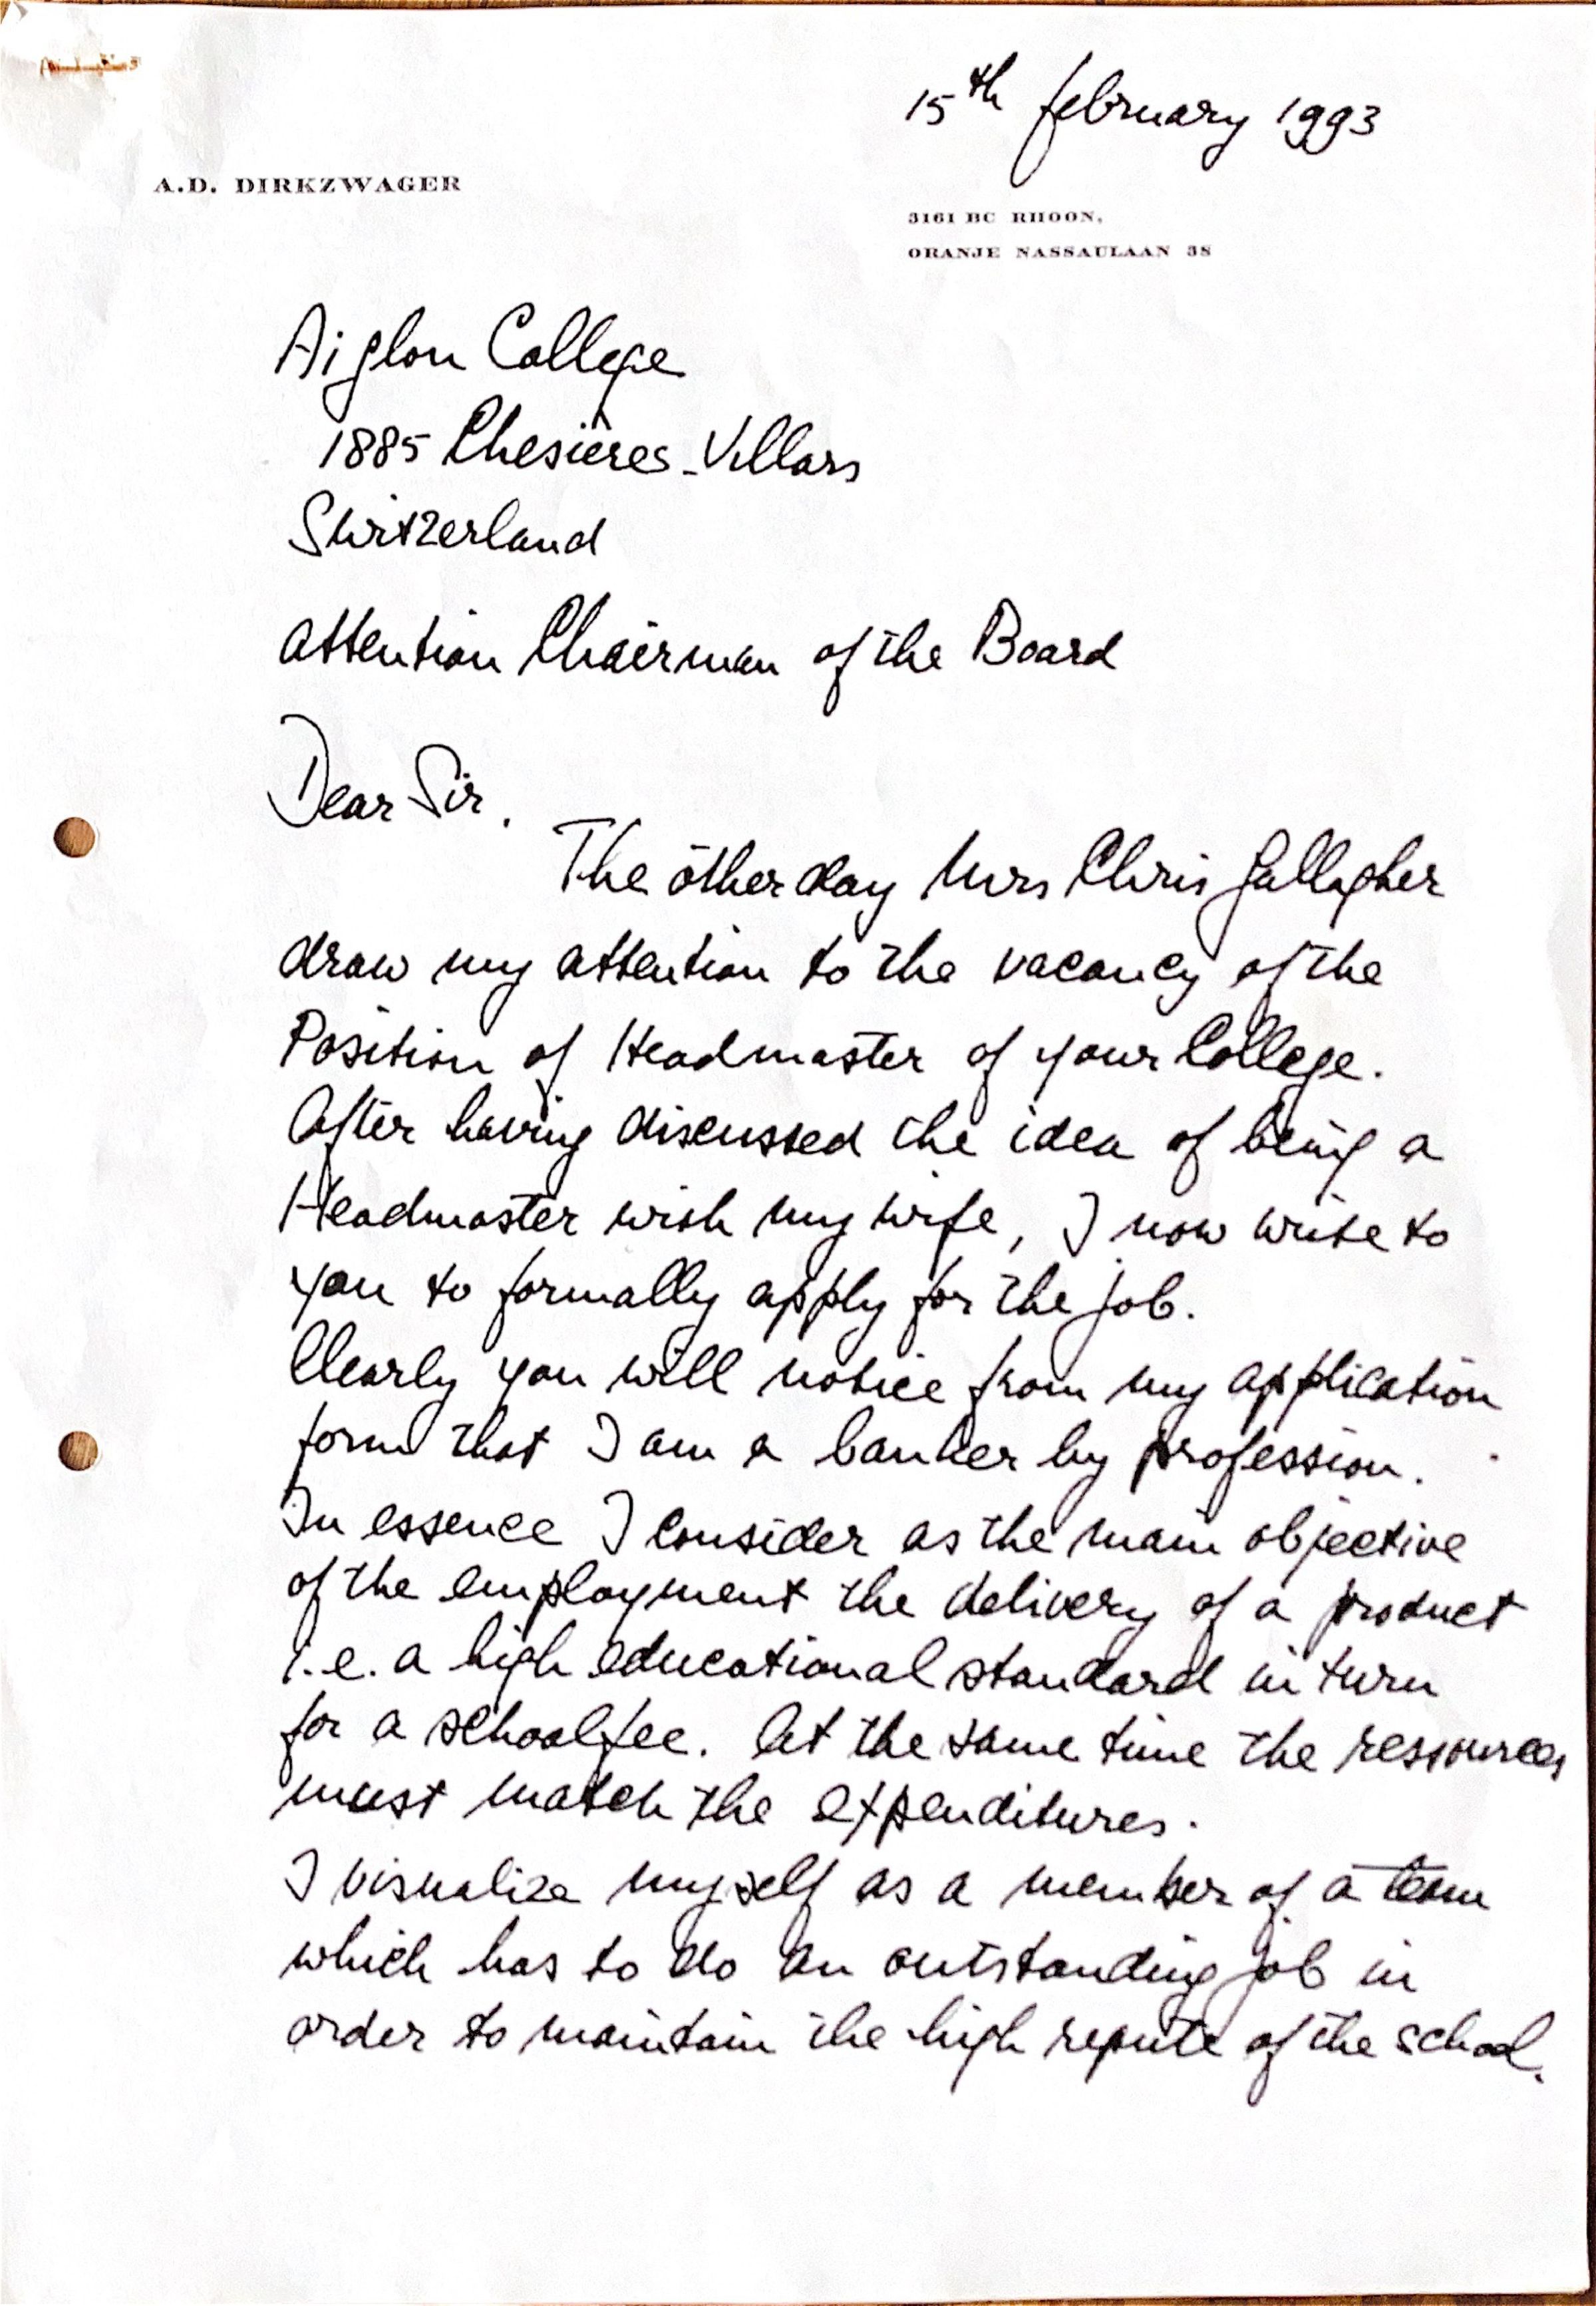 15th february 1993
A.D. DIRKZWAGER
3161 BC RHOON,
ORANJE NASSAULAAN 38
Aiglon College
1885 Chesières-Villars
Switzerland
attention Chairman of the Board
Dear Sir.
The other day Mrs Chris Gallagher
draw my attention to the vacancy of the
Position of Headmaster of your College.
After having discussed the idea of being a
Headmaster with my wife, I now write to
you to formally apply for the job.
Clearly you will notice from my application
form that I am a banker by profession.
In essence I consider as the main objective
of the employment the delivery of a product
i.e. a high educational standard in turn
for a schoolfee. At the same time the ressources
must match the expenditures.
I visualize myself as a member of a team
which has to do an outstanding job in
order to maintain the high repute of the school.